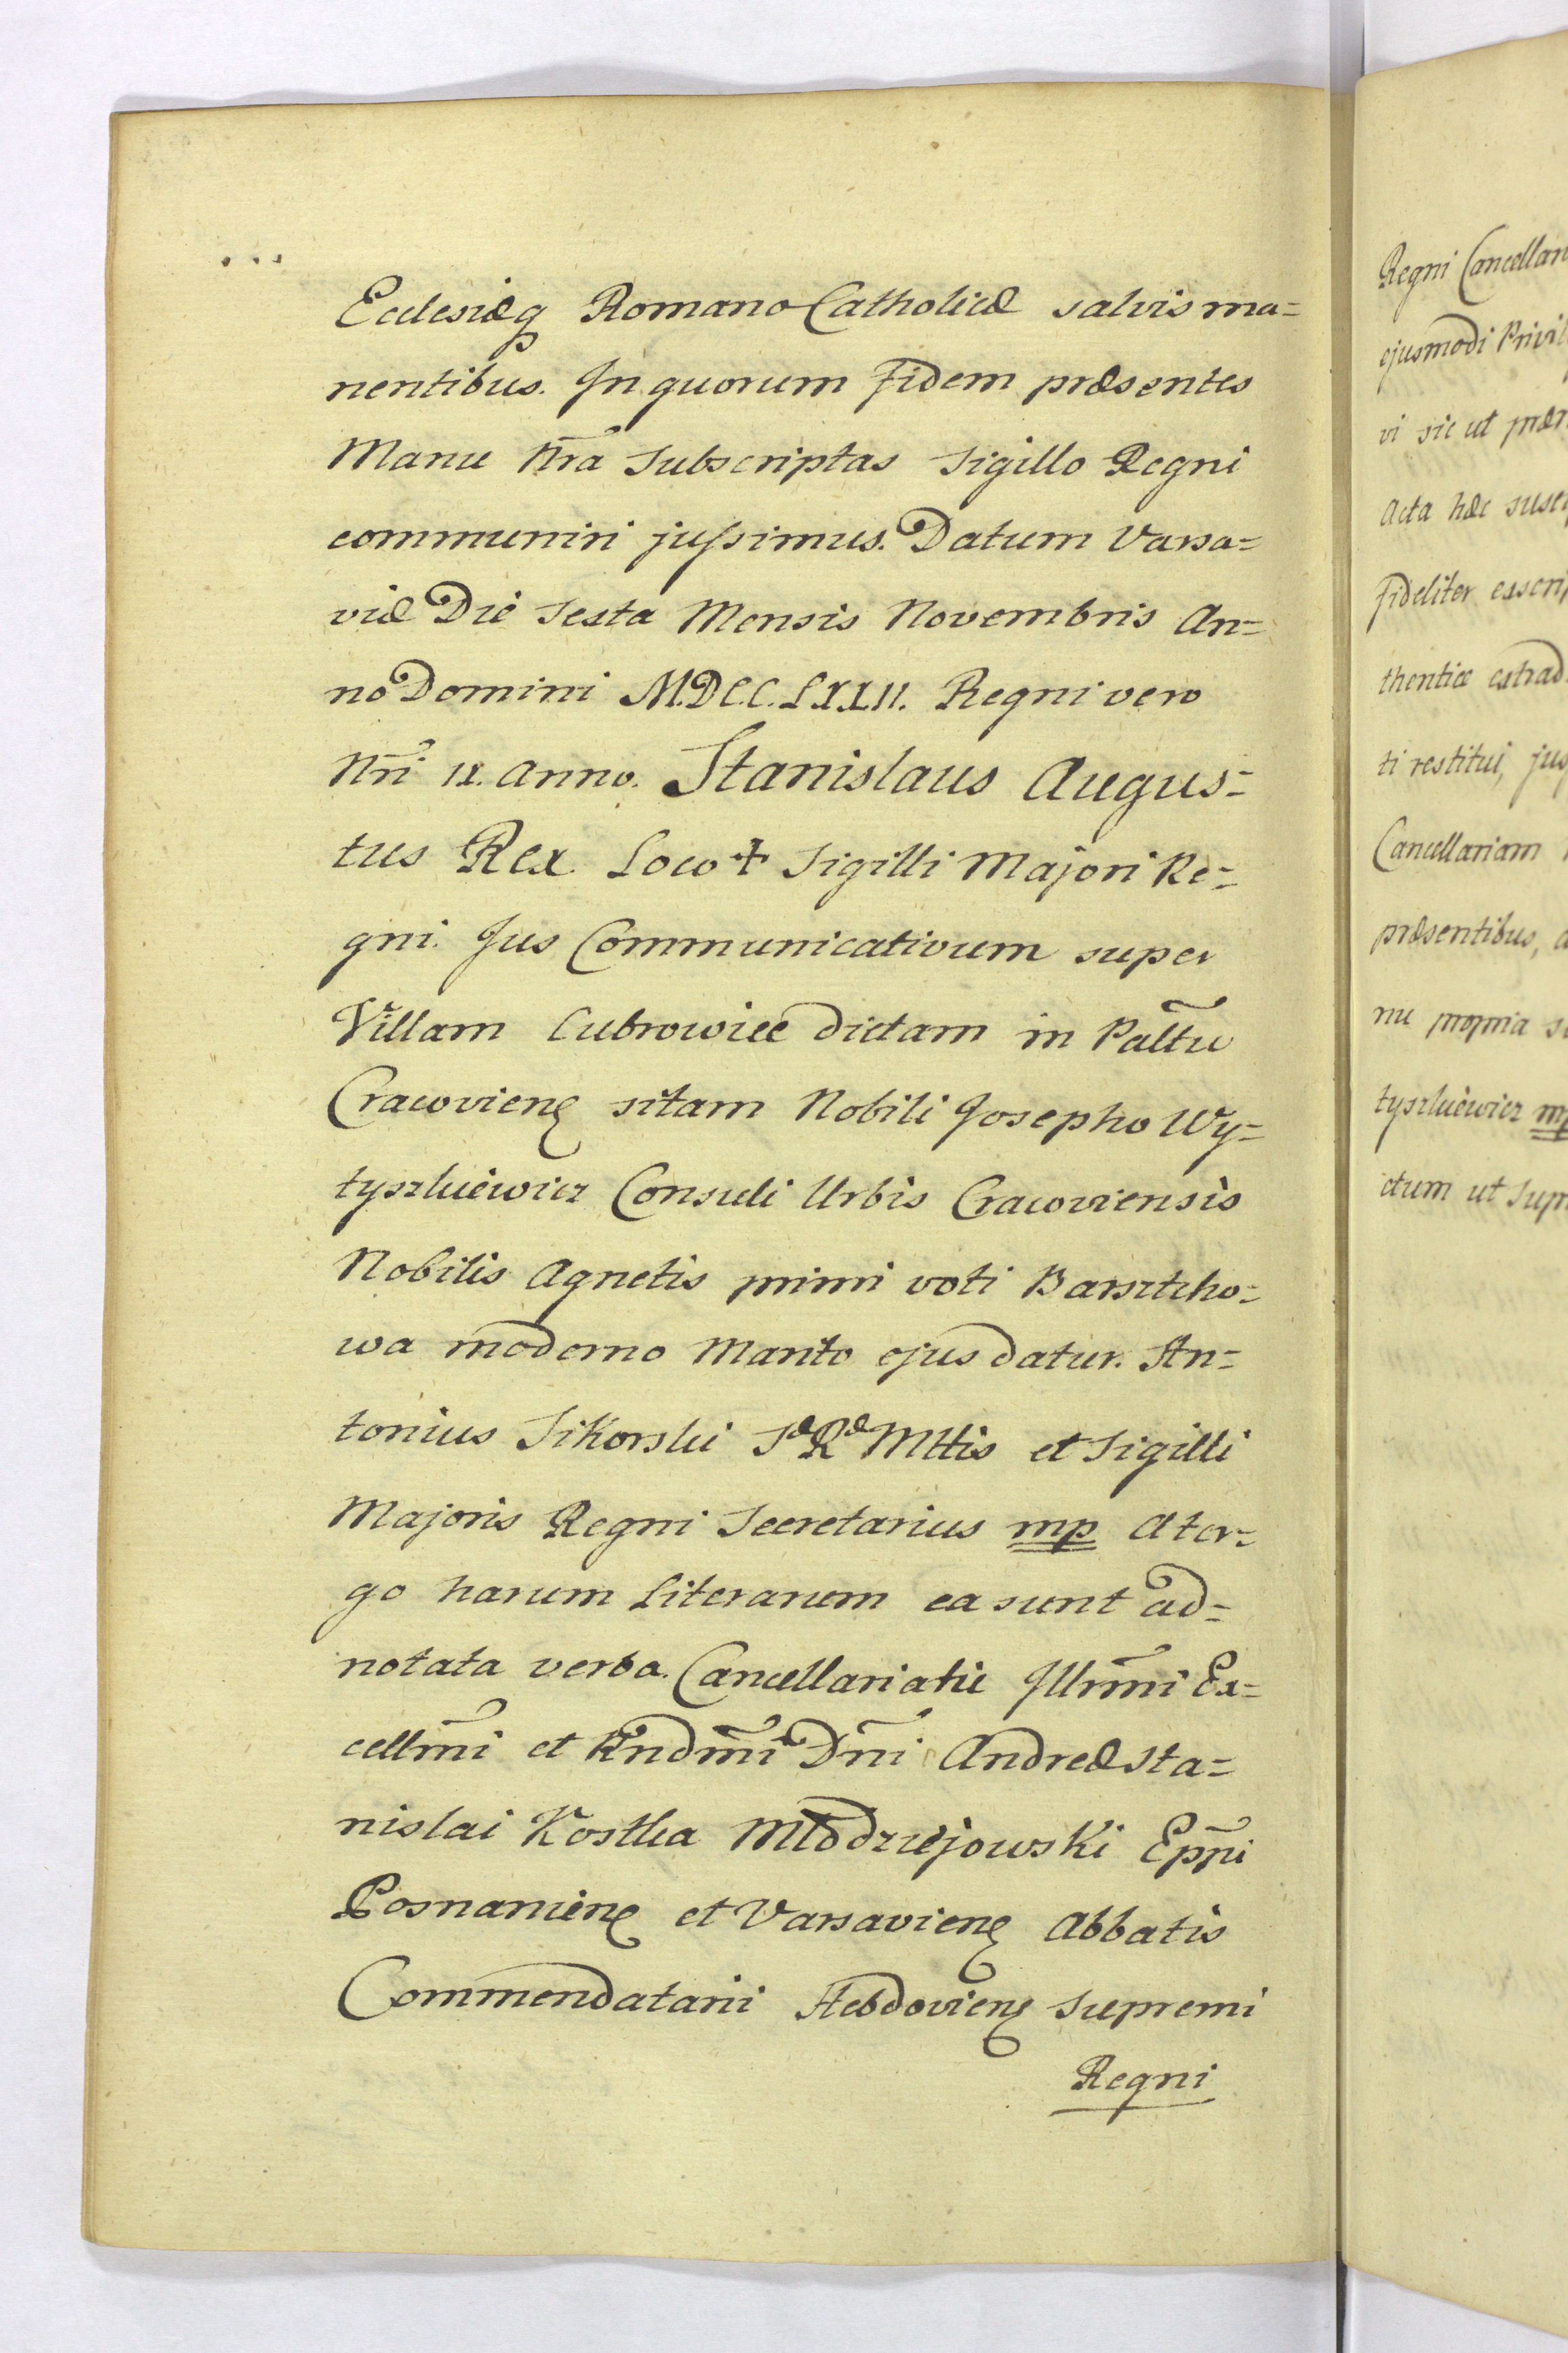 Ecclesiæq Romano Catholicæ salvis ma=
nentibus. In quorum fidem præsentes
Manu Nr̃a Subscriptas Sigillo Regni
communiri jussimus. Datum Varsa=
viæ Die Sexta Mensis Novembris An=
no Domini M.D.C.C.LXXII. Regni vero
Nr̃i IX. Anno. Stanislaus Augus=
tus Rex. Loco + Sigilli Majori Re=
gni. Jus Communicativum super
Villam Lubrowice dictam in Paltũ
Cracovien sitam Nobili Josepho Wy=
tyszkiewicz Consuli Urbis Cracoviensis
Nobilis Agnetis primi voti Barsztcho=
wa moderno Marito ejus datur. An=
tonius Sikorski Sæ Ræ Mttis et Sigilli
Majoris Regni Secretarius mp A ter=
go harum Literarum ea sunt ad=
notata verba. Cancellariatu Illrm̃i Ex=
cellm̃i et Rndm̃i Dñi Andreæ Sta=
nislai Kostka Młodziejowski Epp̃i
Posnanien et Varsavien Abbatis
Commendatarii Hebdovien Supremi
Regni
Regni Cancellari
ejusmodi Privil
vi sic ut præ
Acta hæc susc
fideliter exscrip
thentice extrad
ti restitui, jus
Cancellariam
præsentibus, a
nu propria s
tyszkiewicz mp
ctum ut Supr